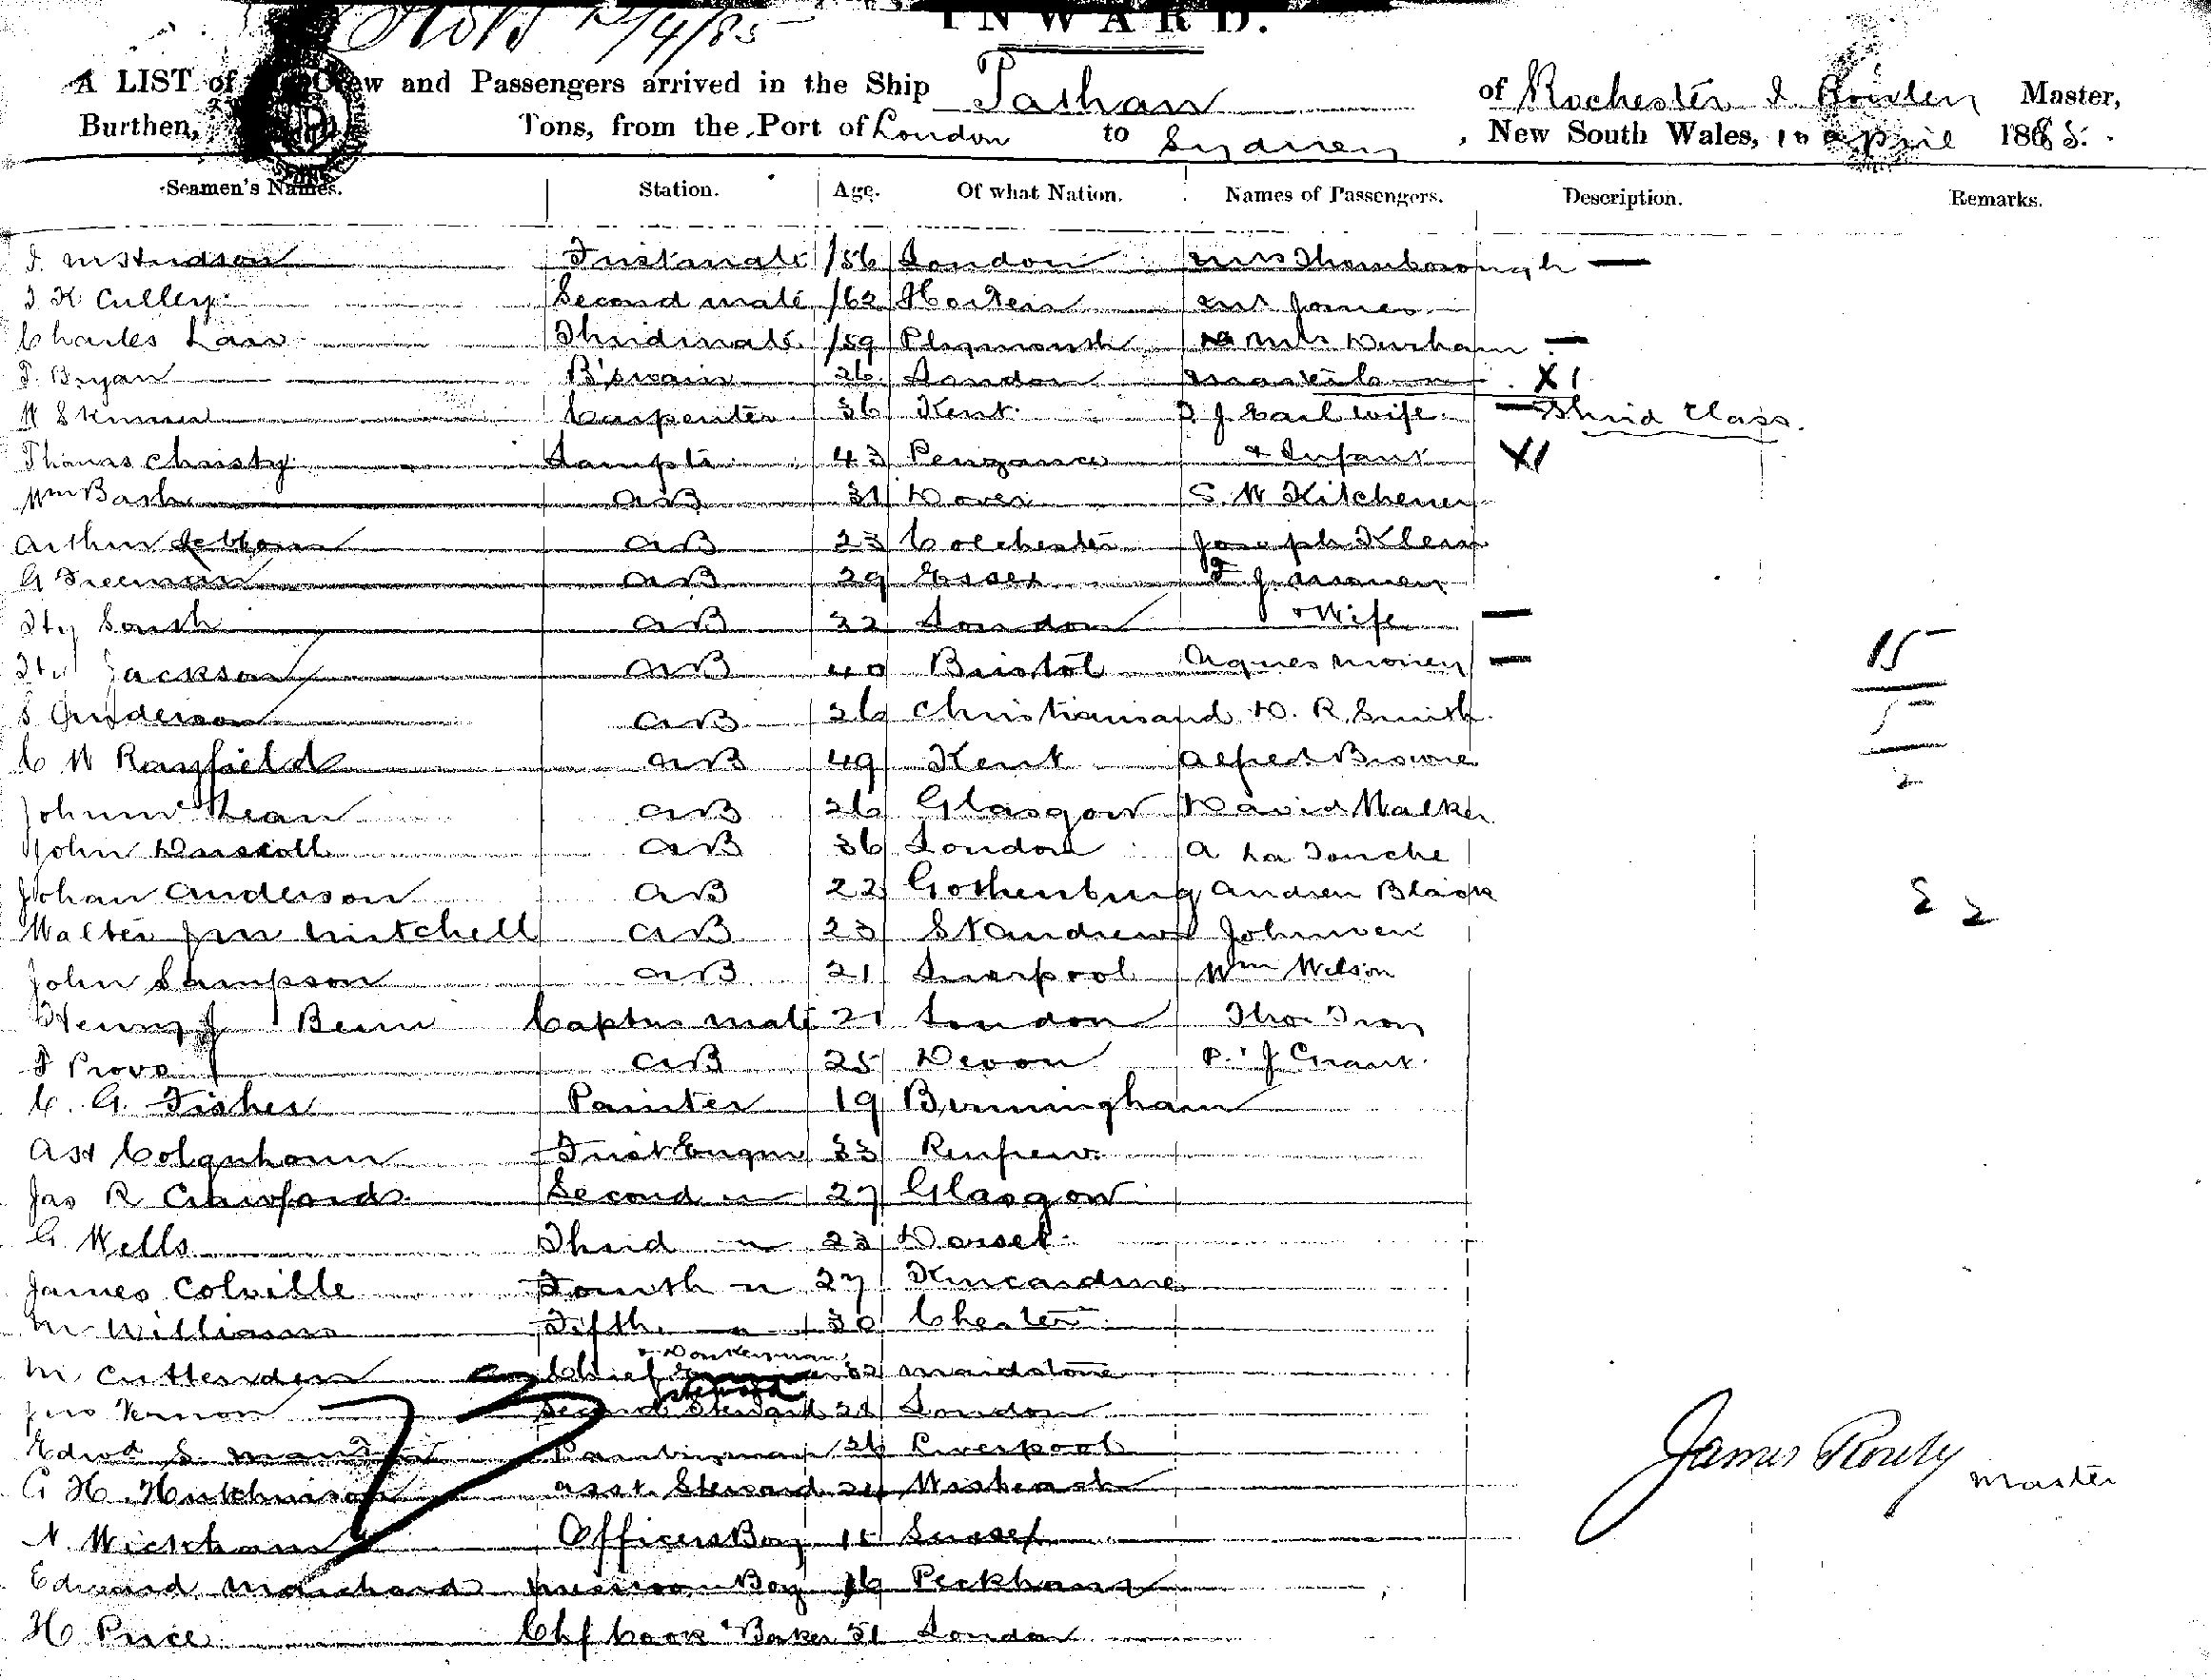 12/4/85
INWARD.
A LIST of Crew and Passengers arrived in the Ship Pathan of Rochester J Rowley Master,
Burthen, Tons, from the Port of London to Sydney, New South Wales, 10 April 1885.
Seamen's Names. Station. Age. Of what Nation. Names of Passengers. Description. Remarks.
Hudson First mate /56 London Mrs Thornborough —
J K Culley Second mate /62 Mr Jones
Charles Law Third mate /59 Plymouth Durham —
T. Bryan B'swain 26 London X 1
W Skinner Carpenter 36 Kent T J Carl wife — Third Class.
Thomas Christy Lamps 43 Penzance & Infant X1
Wm Bash AB 31 Dover S. W Kitchener
Arthur AB 23 Colchester Joseph Klein
G Freeman AB 29 Essex
Hy South AB 22 London & Wife —
Jackson AB 40 Bristol Agnes Money — 15
Anderson AB 26 Christiansand D. R. Smith
C W Rayfield AB 49 Kent Alfred Browne 2
John McLean AB 26 Glasgow David Walker
John Driscoll AB 36 London A La Touche
Johan Anderson AB 22 Gothenburg Andrew Black 2 2
Walter Mitchell AB 23 St Andrews John
John Sampson AB 21 Liverpool Wm Wilson
Henry J Benn Captns mate 21 London Thos
F Prove AB 25 Devon P. J Grant.
C. G. Fisher Painter 19 Birmingham
Colquhoun First Engnr 33 Renfrew
Jas R Crawford Second " 27 Glasgow
G. Wells Third " 23 Dorset
James Colville Fourth " 27 Kincardine
M Williams Fifth " 30 Chester
& Donkeyman
M Cuttenden Chief 32 Maidstone
Steward
Jno Vernon Second Steward 21 London
Edwd S. Pantryman 26 Liverpool
G H. Hutchinson Asst. Steward 24 Wisbeach
James Rowly Master
N. Wickham Officers Boy 15 Sussex
Edward Marchand Messroom Boy 16 Peckham
H Price Chf Cook & Baker 31 London